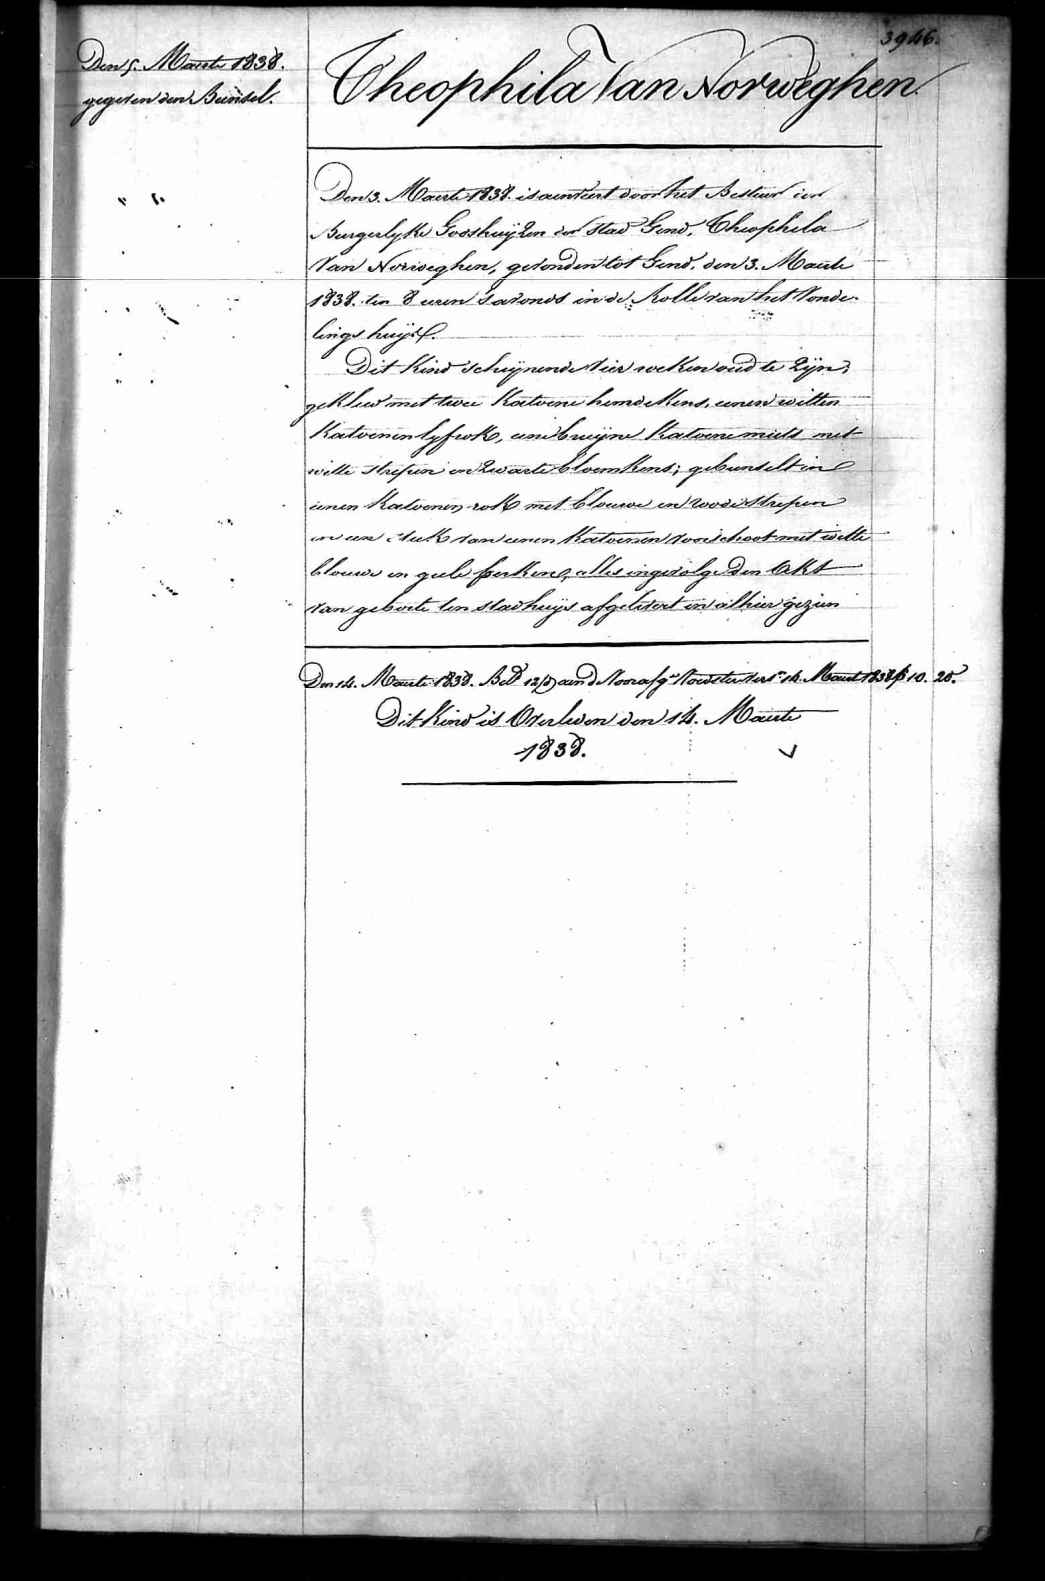 3946.
Den 5. Maerte 1838.
gegeven den Bunsel.
Theophila Van Norweghen
Den 3. Maerte 1838. is aenveert door het Bestuur der
Burgerlyke Godshuijzen der stad Gend, Theophila
Van Norweghen, gevonden tot Gend, den 3. Maerte
1838. ten 8 uren s'avonds in de Rolle van het Vonde-
lingshuijs.
Dit Kind schijnende vier weken oud te zijn,
gekleed met twee Katoene hemdekens, eenen witten
Katoenen lyfrok, eene bruijne Katoene muts met
witte strepen en zwarte bloemkens; gebunselt in
eenen Katoenen rok met blouwe en roode strepen
en een stuk van eenen Katoenen voorschoot met witte
blouwe en geele perkens, alles ingevolge den Akt
van geboorte ten stadhuijs afgelevert en alhier gezien
Den 14. Maerte 1838. Bet. 12 aen d Voorsz. Voedster 14. Maert 1838 10. 20.
Dit Kind is Overleden den 14. Maerte
1838.